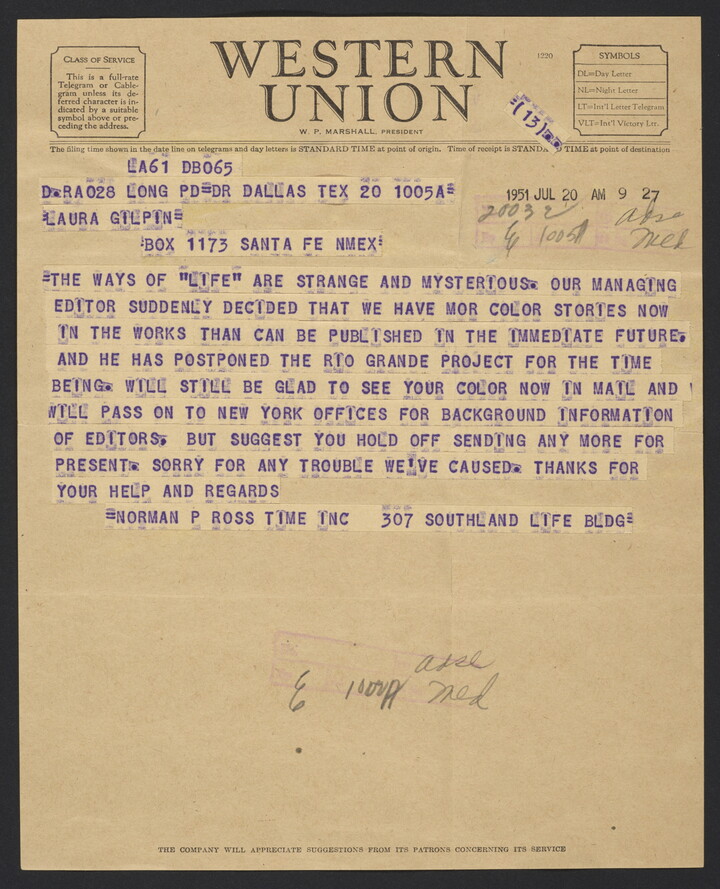 CLASS OF SERVICE
This is a full-rate
Telegram or Cable-
gram unless its de-
ferred character is in-
dicated by a suitable
symbol above or pre-
ceding the address.
WESTERN
UNION
W. P. MARSHALL, PRESIDENT
1220
SYMBOLS
DL=Day Letter
NL=Night Letter
LT=Int'l Letter Telegram
VLT=Int'l Victory Ltr.
=(13)
The filing time shown in the date line on telegrams and day letters is STANDARD TIME at point of origin. Time of receipt is STANDARD TIME at point of destination
LA61 DB065
D.RA028 LONG PD=DR DALLAS TEX 20 1005A=
1951 JUL 20 AM 9 27
=LAURA GILPIN=
1005A
BOX 1173 SANTA FE NMEX=
=THE WAYS OF "LIFE" ARE STRANGE AND MYSTERIOUS. OUR MANAGING
EDITOR SUDDENLY DECIDED THAT WE HAVE MOR COLOR STORIES NOW
IN THE WORKS THAN CAN BE PUBLISHED IN THE IMMEDIATE FUTURE.
AND HE HAS POSTPONED THE RIO GRANDE PROJECT FOR THE TIME
BEING. WILL STILL BE GLAD TO SEE YOUR COLOR NOW IN MAIL AND
WILL PASS ON TO NEW YORK OFFICES FOR BACKGROUND INFORMATION
OF EDITORS. BUT SUGGEST YOU HOLD OFF SENDING ANY MORE FOR
PRESENT. SORRY FOR ANY TROUBLE WE'VE CAUSED. THANKS FOR
YOUR HELP AND REGARDS
=NORMAN P ROSS TIME INC 307 SOUTHLAND LIFE BLDG=
THE COMPANY WILL APPRECIATE SUGGESTIONS FROM ITS PATRONS CONCERNING ITS SERVICE